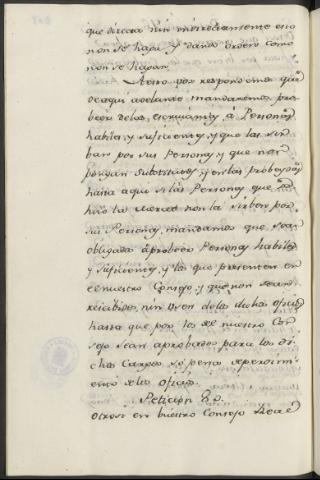 que directa nin indirectamente esto
non se haga, y dando orden como
non se hagan.
A esto vos respondemos que
de aquí adelante mandaremos pro-
veer de las a Personas
habiles, y suficientes, y que las sir-
ban por sus Personas, y que non
pongan Substitutos, y en las probeydas
hasta aqui si las Personas que
la merced non la sirben por
sus Personas, mandamos que sean
obligados á probeer Personas habiles,
y suficientes, y las que presenten en
el nuestro Consejo, y que non sean
recibidos, nin usen de los dichos oficios
hasta que por los del nuestro Con-
sejo sean aprobados para los di-
chos Cargos, so pena de perdimi-
ento de los oficios.
Peticion
Otrosi en vuestro Consejo Real